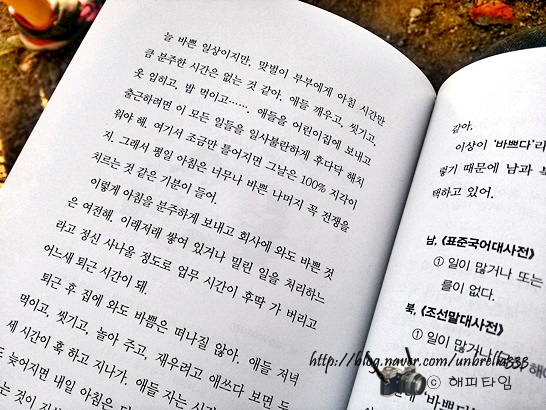 늘 바쁜 일상이지만, 맞벌이 부부에게 아침 시간만
큼 분주한 시간은 없는 것 같아. 애들 깨우고, 씻기고,
옷 입히고, 밥 먹이고……. 애들을 어린이집에 보내고
출근하려면 이 모든 일들을 일사불란하게 후다닥 해치
워야 해. 여기서 조금만 틀어지면 그날은 100% 지각이
지. 그래서 평일 아침은 너무나 바쁜 나머지 꼭 전쟁을
치르는 것 같은 기분이 들어.
이렇게 아침을 분주하게 보내고 회사에 와도 바쁜 것
은 여전해. 이래저래 쌓여 있거나 밀린 일을 처리하느
라고 정신 사나울 정도로 업무 시간이 후딱 가 버리고
어느새 퇴근 시간이 돼.
퇴근 후 집에 와도 바쁨은 떠나질 않아. 애들 저녁
먹이고, 씻기고, 놀아 주고, 재우려고 애쓰다 보면 두
세 시간이 훅 하고 지나가. 애들 자는 시간
늦어지면 내일 아침은 다
는 것이 지
같아.
이상이 '바쁘다'라
렇기 때문에 남과 북
택하고 있어.
남, 《표준국어대사전》
① 일이 많거나 또는
를이 없다.
북, 《조선말대사전》
① 일이 많거나
http://blog.naver.com/unbrella333
ⓒ 해피타임